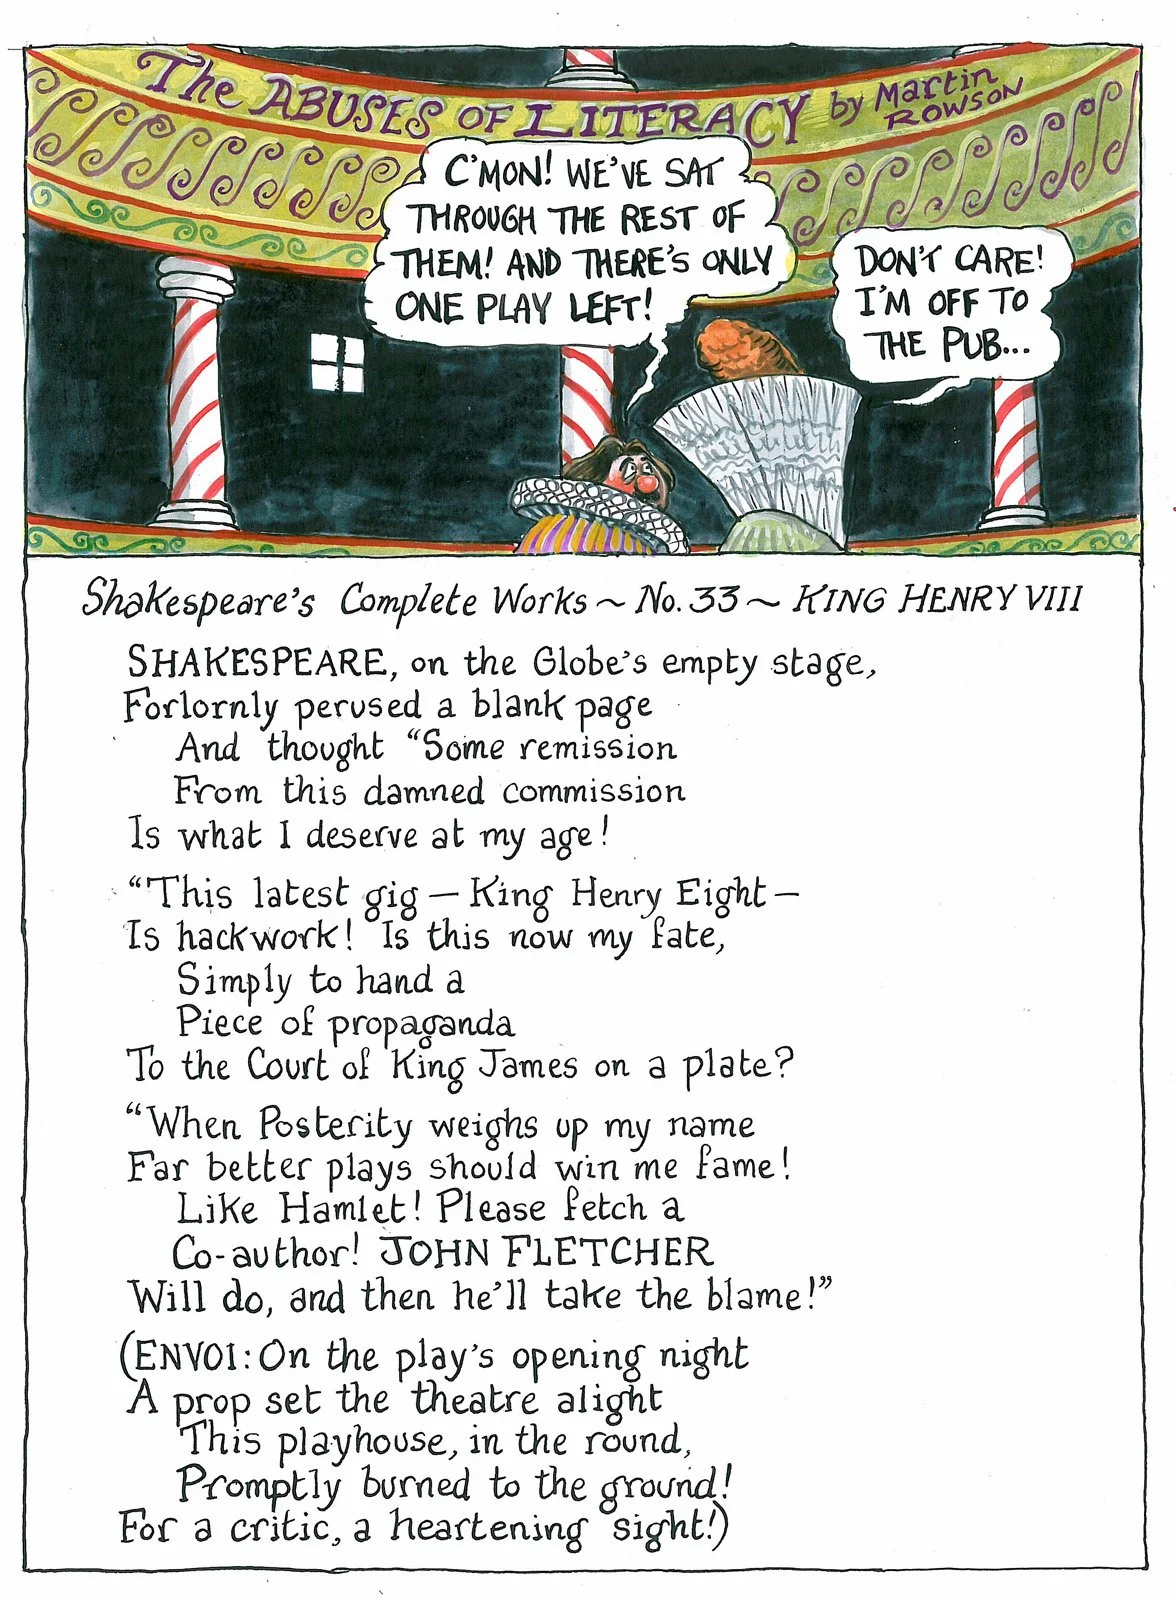 The ABUSES OF LITERACY by Martin ROWSON
C'MON! WE'VE SAT
THROUGH THE REST OF
THEM! AND THERE'S ONLY
ONE PLAY LEFT!
DON'T CARE!
I'M OFF TO
THE PUB...
Shakespeare's Complete Works ~ No. 33 ~ KING HENRY VIII
SHAKESPEARE, on the Globe's empty stage,
Forlornly perused a blank page
And thought "Some remission
From this damned commission
Is what I deserve at my age!
"This latest gig – King Henry Eight –
Is hackwork! Is this now my fate,
Simply to hand a
Piece of propaganda
To the Court of King James on a plate?
"When Posterity weighs up my name
Far better plays should win me fame!
Like Hamlet! Please fetch a
Co-author! JOHN FLETCHER
Will do, and then he'll take the blame!"
(ENVOI: On the play's opening night
A prop set the theatre alight
This playhouse, in the round,
Promptly burned to the ground!
For a critic, a heartening sight!)